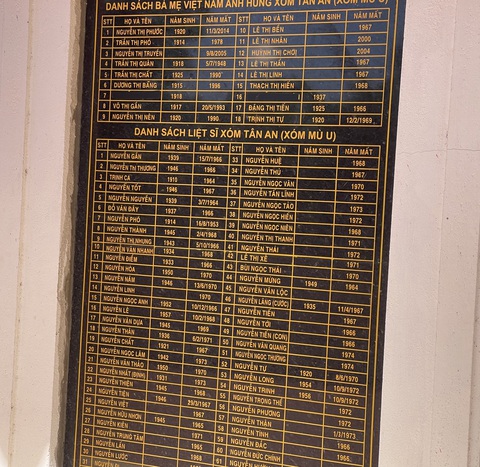 DANH SÁCH BÀ MẸ VIỆT NAM ANH HÙNG XÓM TÂN AN (XÓM MÙ U)
STT HỌ VÀ TÊN NĂM SINH NĂM MẤT STT HỌ VÀ TÊN NĂM SINH NĂM MẤT
1 NGUYỄN THỊ PHƯỚC 1920 11/3/2014 10 LÊ THỊ BÊN 1967
2 TRẦN THỊ PHÒ 1914 1978 11 LÊ THỊ NHÀN 2000
3 NGUYỄN THỊ TRUYỀN 9/8/2005 12 HUỲNH THỊ CHƠI 2004
4 TRẦN THỊ QUÂN 1918 5/7/1948 13 LÊ THỊ THẨN 1967
5 TRẦN THỊ CHẤT 1925 1990 14 LÊ THỊ LINH 1967
6 DƯƠNG THỊ BẰNG 1915 1996 15 THẠCH THỊ HIỀN 1968
7 1918 16 1937
8 VÕ THỊ GẦN 1917 20/5/1993 17 ĐẶNG THỊ TIÊN 1925 1966
9 NGUYỄN THỊ NÊN 1920 1990 18 TRỊNH THỊ TỰ 1920 12/2/1969
DANH SÁCH LIỆT SĨ XÓM TÂN AN (XÓM MÙ U)
STT HỌ VÀ TÊN NĂM SINH NĂM MẤT STT HỌ VÀ TÊN NĂM SINH NĂM MẤT
1 NGUYỄN GẦN 1939 15/7/1966 33 NGUYỄN HUỆ 1968
2 NGUYỄN THỊ THƯƠNG 1946 1966 34 NGUYỄN THÚ 1967
3 TRỊNH CA 1910 1964 35 NGUYỄN NGỌC VÂN 1970
4 NGUYỄN TỐT 1946 1967 36 NGUYỄN TẤN LĨNH 1972
5 NGUYỄN NGUYÊN 1939 3/7/1964 37 NGUYỄN NGỌC TẢO 1973
6 ĐỖ VĂN ĐÂY 1937 1966 38 NGUYỄN NGỌC HIỀN 1972
7 NGUYỄN PHÓ 1914 16/8/1953 39 NGUYỄN NGỌC NIÊN 1968
8 NGUYỄN THÀNH 1945 2/4/1968 40 NGUYỄN THỊ THANH 1971
9 NGUYỄN THỊ NHUNG 1943 5/10/1966 41 NGUYỄN THÁI 1972
10 NGUYỄN VĂN NHÀNH 1933 1968 42 LÊ THỊ XÊ 1971
11 NGUYỄN ĐIỂM 1933 1966 43 BÙI NGỌC THÁI 1970
12 NGUYỄN HÒA 1950 1970 44 NGUYỄN MỪNG 1949 1964
13 NGUYỄN NĂM 1946 13/6/1970 45 NGUYỄN VĂN LỘC
14 NGUYỄN LINH 1970 46 NGUYỄN LÃNG (CƯỚC) 1935 11/4/1967
15 NGUYỄN NGỌC ANH 1952 10/12/1966 47 NGUYỄN TIẾN 1967
16 NGUYỄN LÊ 1957 10/2/1968 48 NGUYỄN TỚI 1966
17 NGUYỄN VĂN DỰA 1945 1969 49 NGUYỄN TIẾN (CON) 1966
18 NGUYỄN THÂN 1936 6/2/1971 50 NGUYỄN VĂN QUANG 1974
19 NGUYỄN CHẤT 1921 1967 51 NGUYỄN NGỌC THƯƠNG 1974
20 NGUYỄN NGỌC LÂM 1942 1973 52 NGUYỄN TỰ 1920 8/6/1970
21 NGUYỄN VĂN THẢO 1950 1970 53 NGUYỄN LONG 1954 10/9/1972
22 NGUYỄN NHẤT (ĐỊNH) 1931 1973 54 NGUYỄN TRINH 1956 10/9/1972
23 NGUYỄN THIÊN 1945 1968 55 NGUYỄN TRỌNG THẾ 1972
24 NGUYỄN TIÊN 1946 1968 56 NGUYỄN PHƯƠNG 1972
25 NGUYỄN VIỆT 29/3/1967 57 NGUYỄN THÂN 1972
26 NGUYỄN HỮU NHƠN 1945 1966 58 NGUYỄN TỊNH 1/3/1973
27 NGUYỄN KIÊN 1965 59 NGUYỄN ĐẮC 1966
28 NGUYỄN TRUNG TÂM 1971 60 NGUYỄN ĐỨC CHÍNH 1965
29 NGUYỄN LÂN 1965 61 NGUYỄN
30 NGUYỄN LƯỚC 1968
31